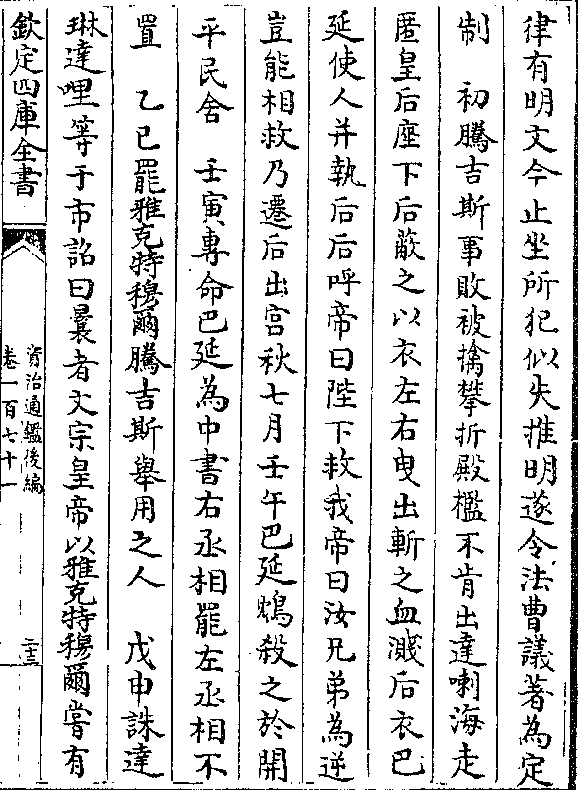 律有明文今止坐所犯似失推明遂令法曹議著為定
制　初騰吉斯事敗被擒攀折殿檻不肯出達喇海走
匿皇后座下后蔽之以衣左右曳出斬之血濺后衣巴
延使人并執后后呼帝曰陛下救我帝曰汝兄弟為逆
豈能相救乃遷后出宫秋七月壬午巴延鴆殺之於開
平民舍　壬寅專命巴延為中書右丞相罷左丞相不
置　乙巳罷雅克特穆爾騰吉斯舉用之人　戊申誅達
琳達哩等于市詔曰曩者文宗皇帝以雅克特穆爾嘗有
欽定四庫全書
資治通鑑後編
卷一百七十一
二十三